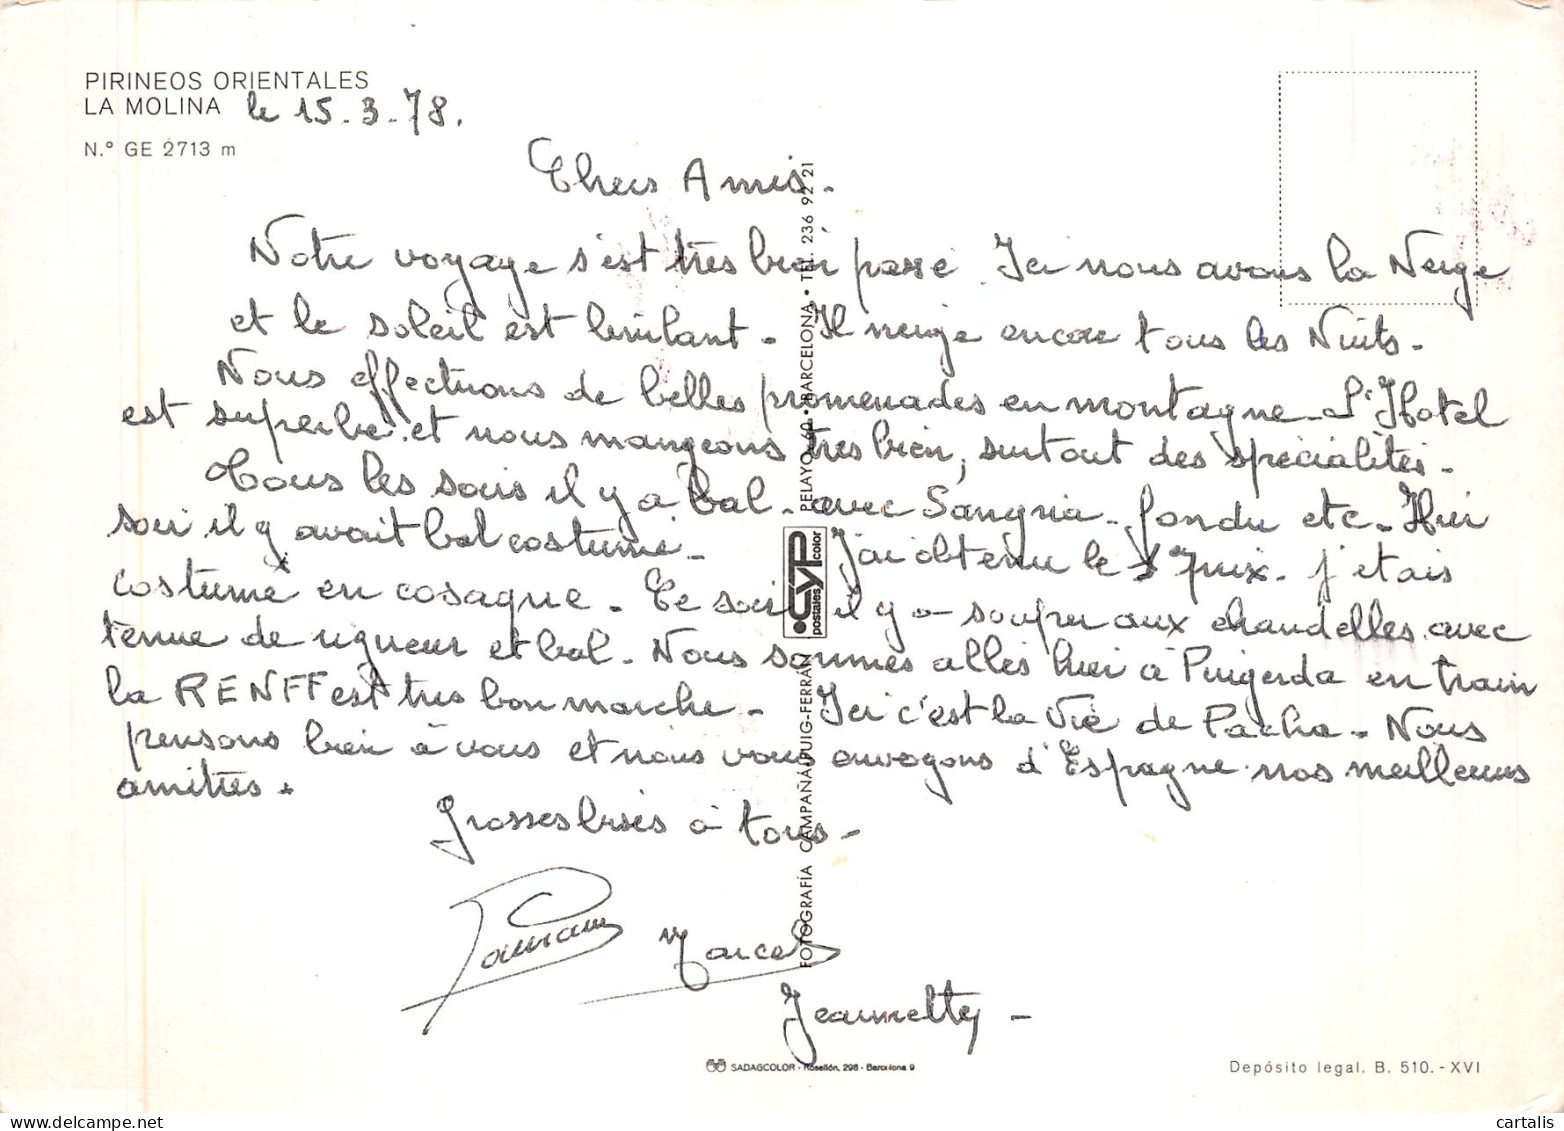 PIRINEOS ORIENTALES
LA MOLINA le 15.3.78.
N.º GE 2713 m
Chers Amis.
Notre voyage s'est très bien passé. Ici nous avons la Neige
et le soleil est brûlant. Il neige encore tous les Nuits.
Nous effectuons de belles promenades en montagne. L'Hotel
est superbe et nous mangeons très bien, surtout des spécialités.
Tous les soirs il y a bal. avec Sangria. fondu etc. Hier
soir il y avait bal costumé. J'ai obtenu le 1er prix. j'étais
costumé en cosaque. Ce soir il y a souper aux chandelles avec
tenue de rigueur et bal. Nous sommes allés hier à Puigerda en train
la RENFF est très bon marché. Ici c'est la vie de Pacha. Nous
pensons bien à vous et nous vous envoyons d'Espagne nos meilleures
amitiés.
Grosses bises à tous.
Marcel
Jeannette
FOTOGRAFÍA CAMPAÑÁ-PUIG-FERRÁN
CYP color
postales
PELAYO, 60 • BARCELONA • TEL. 236 92 21
SADAGCOLOR - Rosellón, 298 - Barcelona 9
Depósito legal. B. 510. - XVI
cartalis